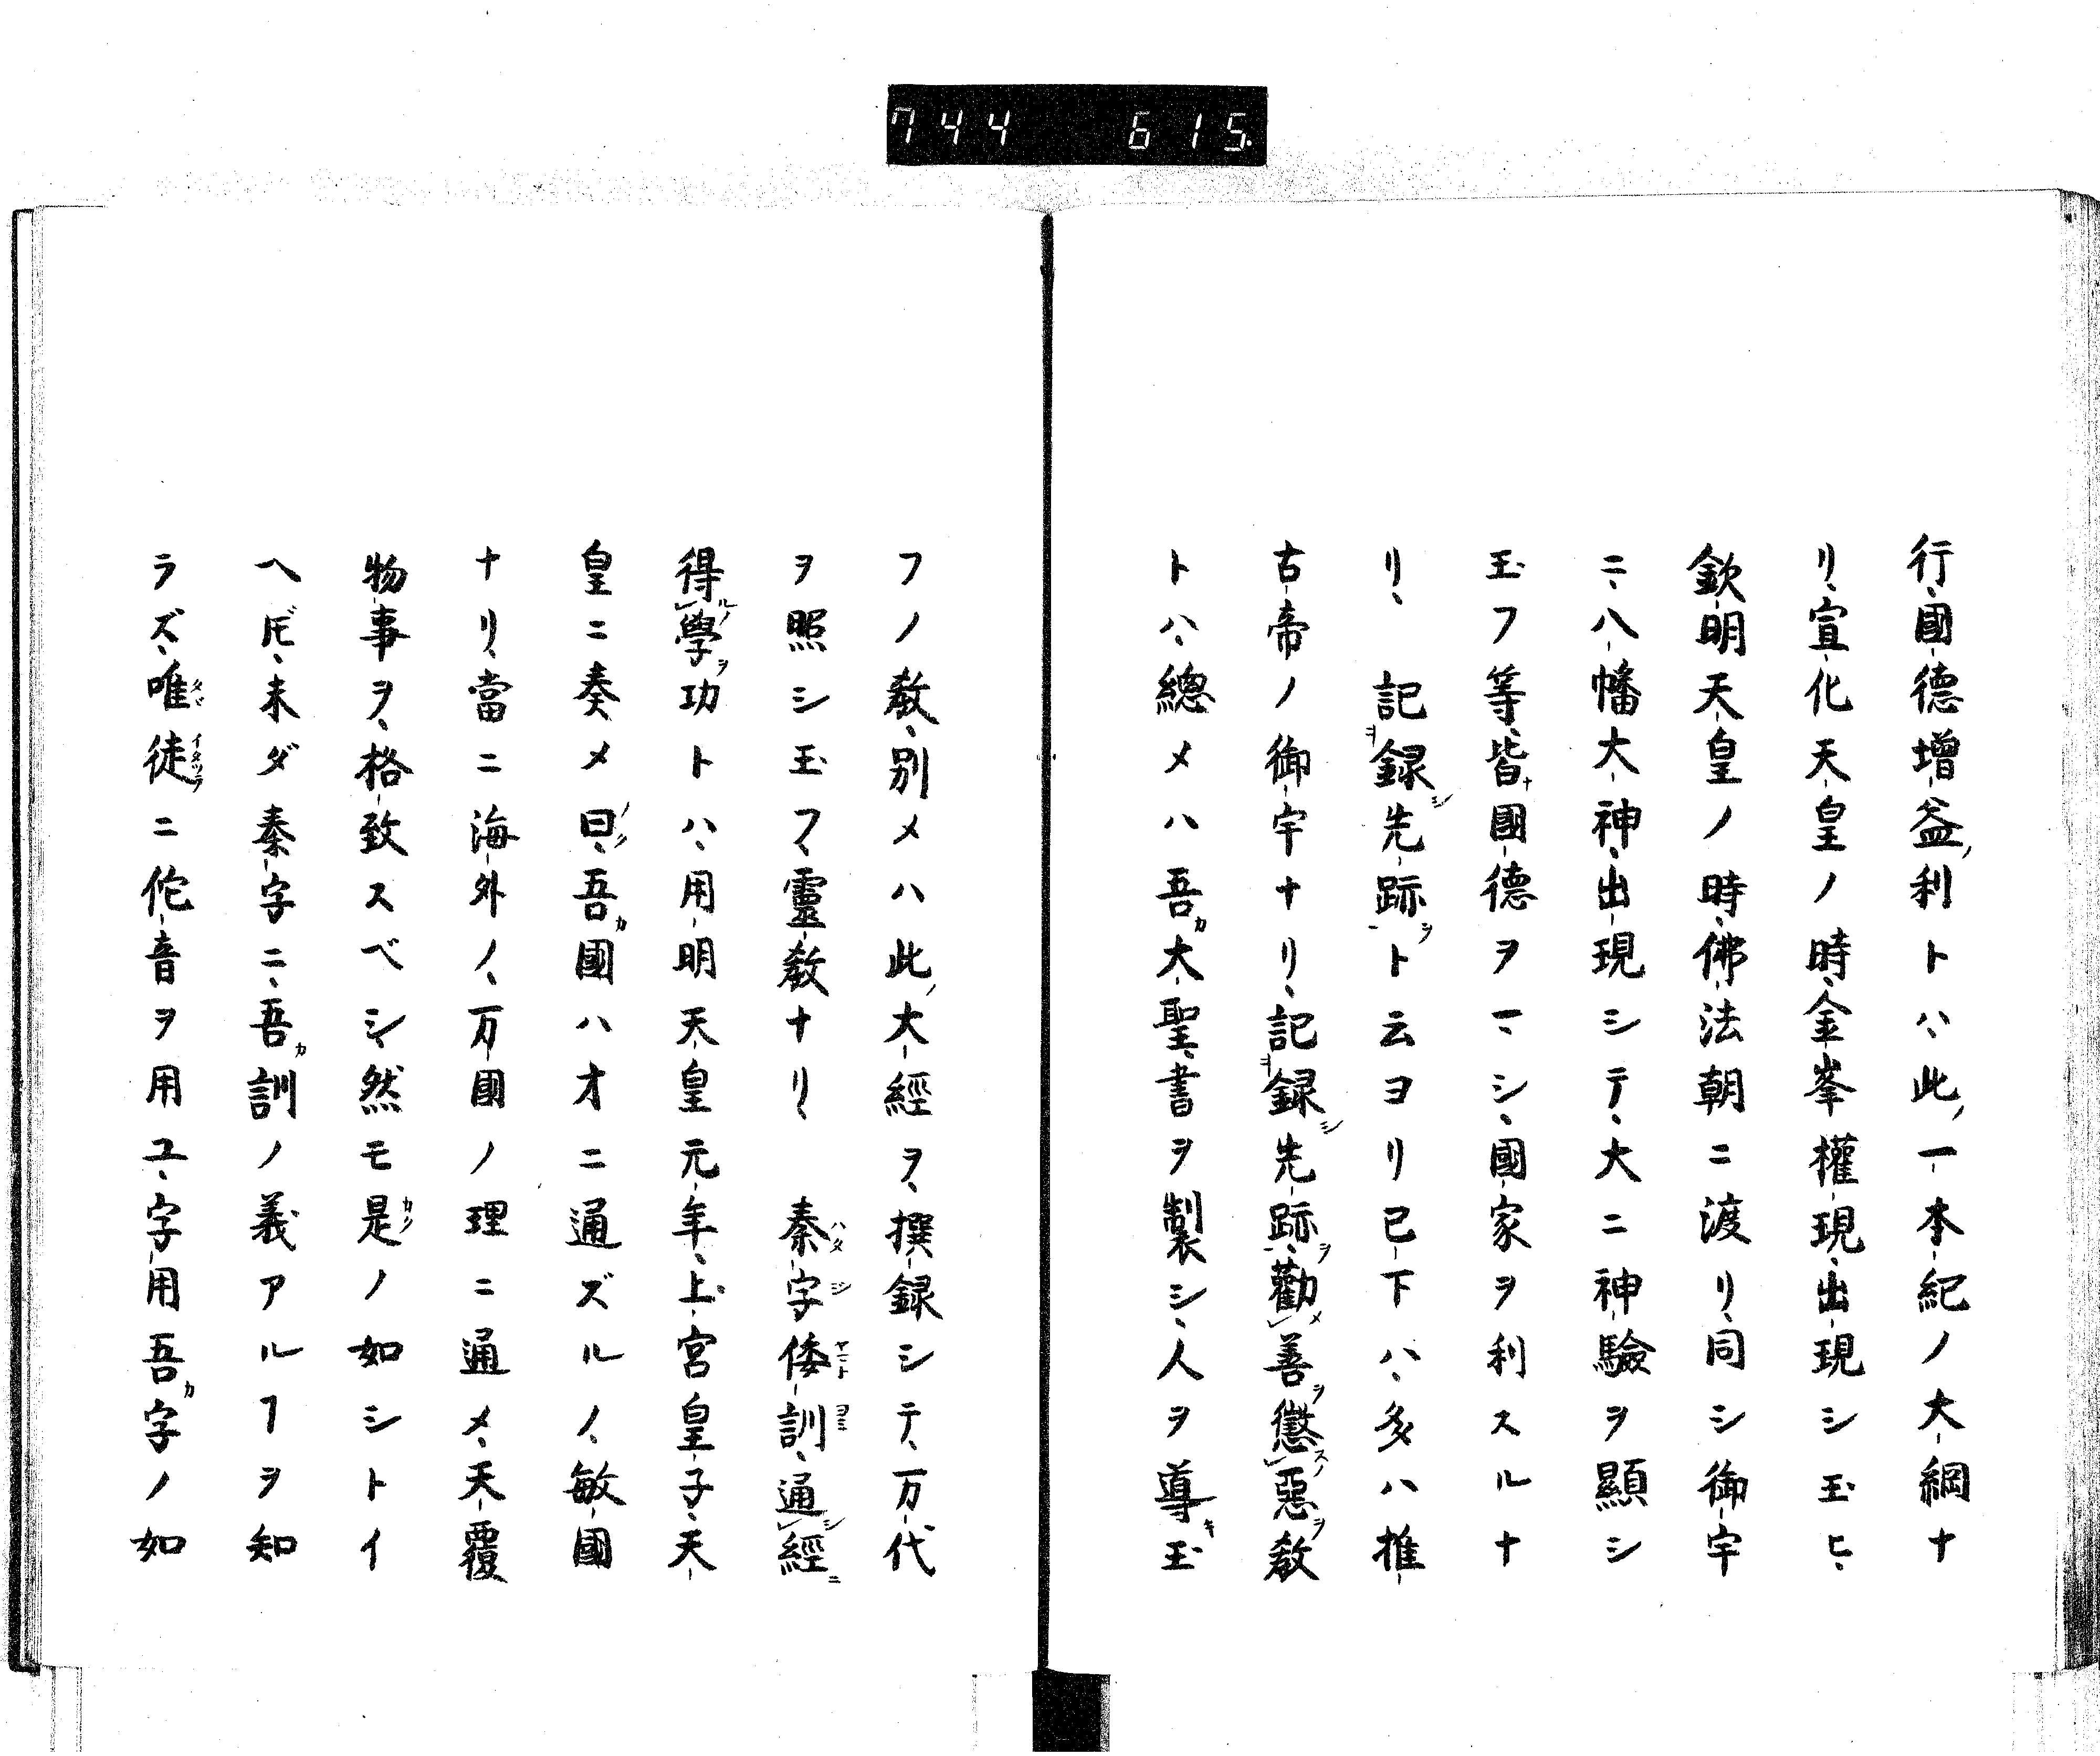 744 615
行、國德增益ノ利トハ、此ノ一本紀ノ大綱ナ
リ、宣化天皇ノ時、金峯權現、出現シ玉ヒ、
欽明天皇ノ時、佛法朝ニ渡リ、同シ御宇
ニ、八幡大神、出現シテ、大ニ神驗ヲ顯シ
玉フ等、皆ナ國德ヲマシ、國家ヲ利スルナ
リ、 記録先跡ト云ヨリ已下ハ、多ハ推
古帝ノ御宇ナリ、記録先跡、勸善懲惡教
トハ、總メハ吾カ大聖、書ヲ製シ、人ヲ導キ玉
フノ教、別メハ此ノ大經ヲ、撰録シテ、万代
ヲ照シ玉フ、靈教ナリ、 秦字倭訓、通經
得學功トハ、用明天皇元年、上宮皇子、天
皇ニ奏メ曰、吾カ國ハオニ通ズルノ、敏國
ナリ、當ニ海外ノ、万國ノ理ニ通メ、天覆
物事ヲ、格致スベシ、然モ是ノ如シトイ
ヘ𪜈、未ダ秦字ニ、吾カ訓ノ義アルヿヲ知
ラズ、唯徒ニ佗音ヲ用ユ、字用吾カ字ノ如